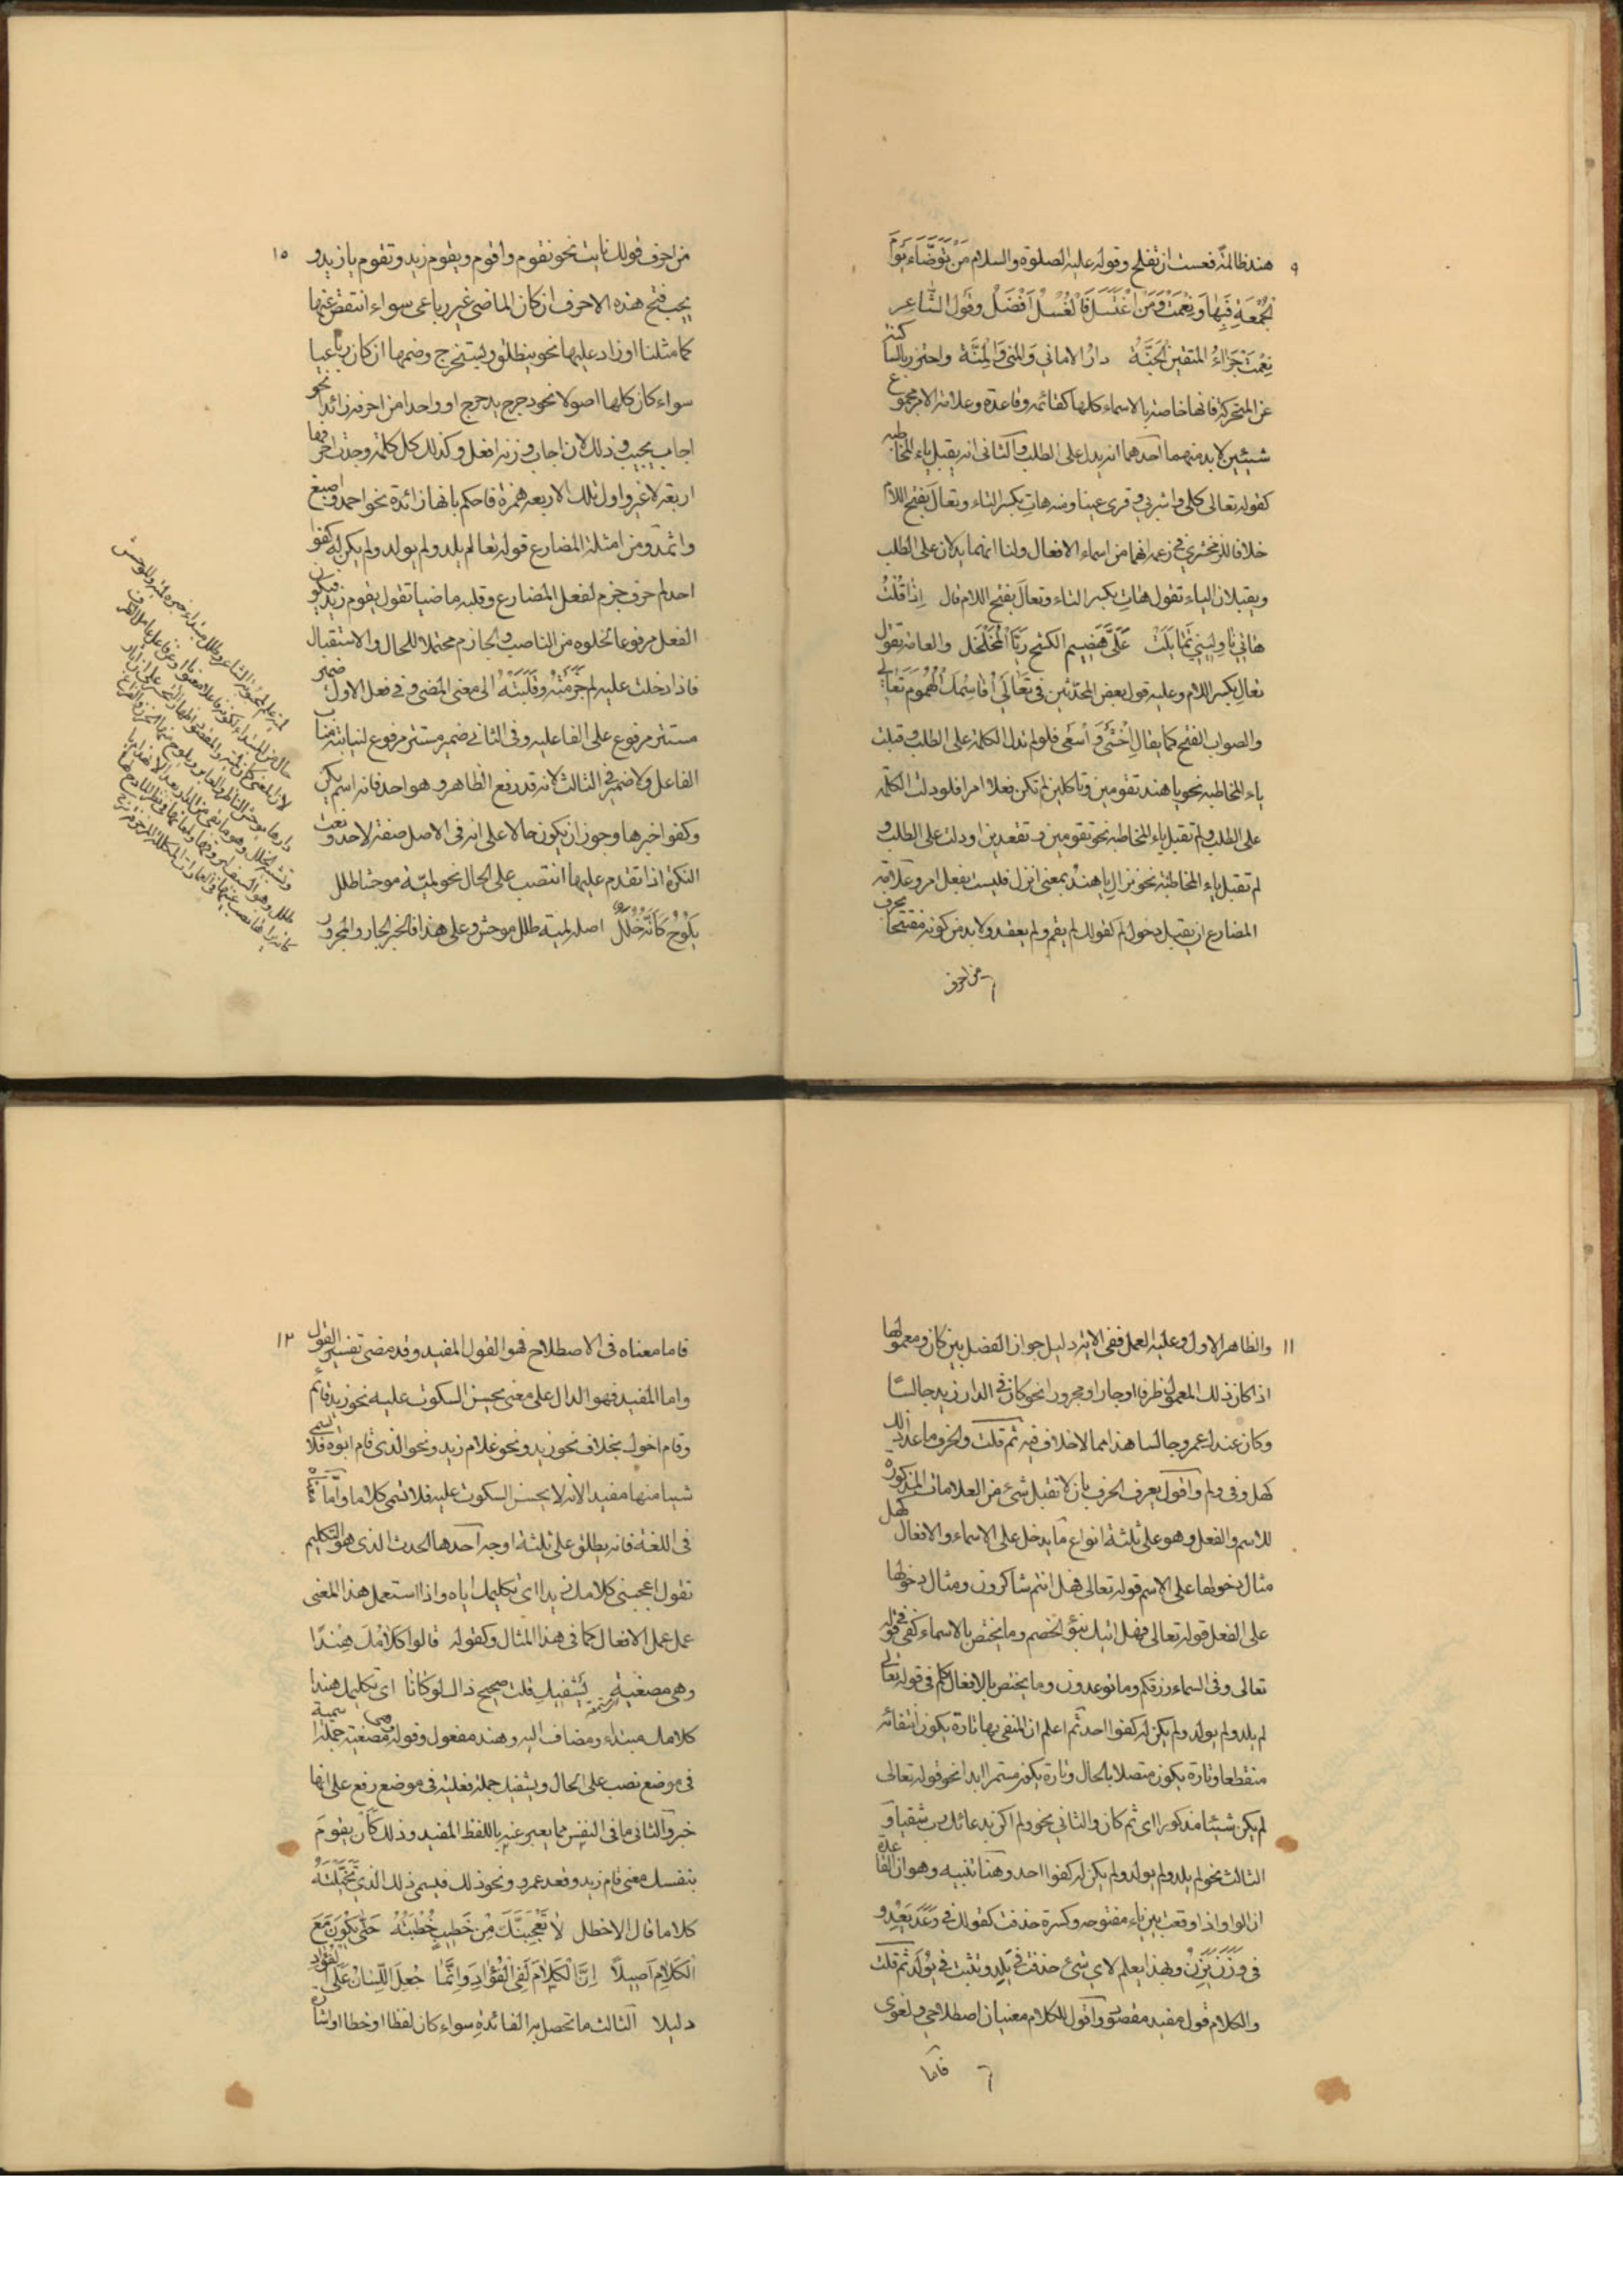 ٩
هند ظالمة فعست ان تفلح وقوله عليه الصلوة والسلام مَن تَوَضَّاءَ يَوْمَ
الجُمُعَةِ فَبِهَا وَنِعْمَتْ وَمَن اغْتَسَلَ فَالْغُسْلُ اَفْضَلُ وقول الشاعر
نِعْمَتْ جَزَاءُ المتقين الجَنَّةُ دارُ الاماني وَالمنى وَالمِنَّة واحترز بالساكنة
عن المتحركة فانها خاصة بالاسماء كلها كقائمة وقاعدة وعلامة الامر مجموع
شيئين لا بد منهما احدهما ان يدل على الطلب والثانى انه يقبل ياء المخاطبه
كقوله تعالى كلى واشربى وقرى عينا ومنه هاتِ بكسر التاء وتعالَ بفتح اللام
خلافا للزمخشرى فى زعمه انهما من اسماء الافعال ولنا انهما يدلان على الطلب
ويقبلان الياء تقول هاتِ بكسر التاء وتعالَ بفتح اللام قال اِذا قُلْتُ
هاتي ناوِليني تمايَلَتْ عَلَىَّ هَضِيم الكشح رَيَّا المُخَلْخَل والعامة تقول
تعالِ بكسر اللام وعليه قول بعض المحدثين فى تَعَالَي اُقَاسِمْكِ الهُمُومَ تَعَالي
والصواب الفتح كما يقال اِخْشَىْ وَاسْعَى فلو لم تدل الكلمة على الطلب وقبلت
ياء المخاطبه نحو يا هند تقومين وتاكلين لم تكن فعلا امرا فلو دلت الكلمة
على الطلب ولم تقبل ياء المخاطبه نحو تقومين وتقعدين او دلت على الطلب و
لم تقبل ياء المخاطبة نحو نزالِ يا هندُ بمعنى انزل فليست بفعل امر وعلامة
المضارع ان يقبل دخول لم كقولك لم يقم ولم يعقد ولا بد من كونه مفتتحا بحرف
من احرف
١٠
من احرف قولك نايت نحو نقوم واقوم ويقوم زيد وتقوم يا زيد و
يجب فتح هذه الاحرف ان كان الماضى غير رباعى سواء انتقض عنها
كما مثلنا او زاد عليها نحو ينطلق ويستخرج وضمها ان كان رباعيا
سواء كان كلها اصولا نحو دحرج يدحرج او واحدا من احرفه زائدا نحو
اجاب يجيب وذلك لان اجاب وزنه افعل وكذلك كل كلمة وجدت احرفها
اربعة لا غير واول تلك الاربعه همزة فاحكم بانها زائدة نحو احمد واصبغ
واثمد ومن امثلة المضارع قوله تعالى لم يلد ولم يولد ولم يكن له كفوا
احد لم حرف جزم لفعل المضارع وقلبه ماضيا تقول يقوم زيد فيكون
الفعل مرفوعا لخلوه من الناصب والجازم محتملا للحال والاستقبال
فاذا دخلت عليه لم جَزَمَتْهُ وقَلَبَتْهُ الى معنى المضى وفى فعل الاول ضمير
مستتر مرفوع على الفاعليه وفى الثانى ضمير مستتر مرفوع لنيابته مناب
الفاعل ولا ضمير فى الثالث لانه قد رفع الظاهر وهو احد فانه اسم يكن
وكفوا خبرها وجوز ان يكون حالا على انه فى الاصل صفة لاحد ونعت
النكرة اذا تقدم عليها انتصب على الحال نحو لميّة موحشا طلل
يَلُوحُ كَاَنَّه خُلَلٌ اصله لمية طلل موحش وعلى هذا فالخبر الجار والمجرور
١١
والظاهر الاول وعليه العمل ففى الاية دليل جواز الفصل بين كان ومعمولها
اذا كان ذلك المعمول ظرفا او جارا ومجرورا نحو كان فى الدار زيد جالسًا
وكان عندك عمرو جالسا هذا مما لا خلاف فيه ثم قلت والحرف ما عدا ذلك
كهل وفى ولم واقول يعرف الحرف بان لا تقبل شئ من العلامات المذكورة
للاسم والفعل وهو على ثلثة انواع ما يدخل على الاسماء والافعال كهل
مثال دخولها على الاسم قوله تعالى فهل انتم شاكرون ومثال دخولها
على الفعل قوله تعالى فهل اتيك نبؤ الخصم وما يختص بالاسماء كفى فى قوله
تعالى وفى السماء رزقكم وما توعدون وما يختص بالافعال كلم فى قوله تعالى
لم يلد ولم يولد ولم يكن له كفوا احد ثم اعلم ان المنفى بها تارة يكون انتفائه
منقطعا وتارة يكون متصلا بالحال وتارة يكون مستمرا ابدا نحو قوله تعالى
لم يكن شيئا مذكورا اى ثم كان والثانى نحو ولم اكن بدعائك رب شقيا و
الثالث نحو لم يلد ولم يولد ولم يكن له كفوا احد وهنا تنبيه وهو ان القاعدة
ان الواو اذا وقعت بين ياء مفتوحه وكسرة حذفت كقولك فى وَعَدَ يَعِدُ و
فى وَزَنَ يَزِنُ وبهذا يعلم لاى شئ حذفت فى يَلِد وتثبت فى يُولَد ثم قلت
والكلام قول مفيد مقصود واقول للكلام معنيان اصطلاحى ولغوى
فاما
١٢
فاما معناه فى الاصطلاح فهو القول المفيد وقد مضى تفسير القول
واما المفيد فهو الدال على معنى يحسن السكوت عليه نحو زيد قائم
وقام اخوك بخلاف نحو زيد ونحو غلام زيد ونحو الذى قام ابوه فلا يسمى
شيا منها مفيدا لانه لا يحسن السكوت عليه فلا تسمى كلاما واما
فى اللغة فانه يطلق على ثلثة اوجه احدها الحدث الذى هو التكليم
تقول اعجبنى كلامك زيدا اى تكليمك اياه واذا استعمل هذا المعنى
عمل عمل الافعال كما فى هذا المثال وكقوله قالوا كَلامُكَ هِنْدًا
وهى مصغية يَشْفِيكِ قلت صحيح ذاك لو كانا اى تكليمك هندا
كلامك مبتداء ومضاف اليه وهند مفعول وقوله وهى مصغية جملة اسمية
فى موضع نصب على الحال ويشفيك جملة فعلية فى موضع رفع على انها
خبر والثانى ما فى النفس مما يعبر عنه باللفظ المفيد وذلك كَاَن يقومَ
بنفسك معنى قام زيد وقعد عمرو ونحو ذلك فيسمى ذلك الذى تَخَيَّلْتَهُ
كلاما قال الاخطل لا تُعْجِبَنَّكَ مِنْ خَطِيبٍ خُطْبَتُهُ حَتّى يَكُونَ مَعَ
الكَلامِ اَصِيلاً اِنَّ الكَلامَ لَفِى الفُؤَادِ وَاِنَّمَا جُعِلَ اللّسَانُ عَلَى الفُؤَادِ
دليلا الثالث ما تحصل به الفائدة سواء كان لفظا او خطا او اشارة